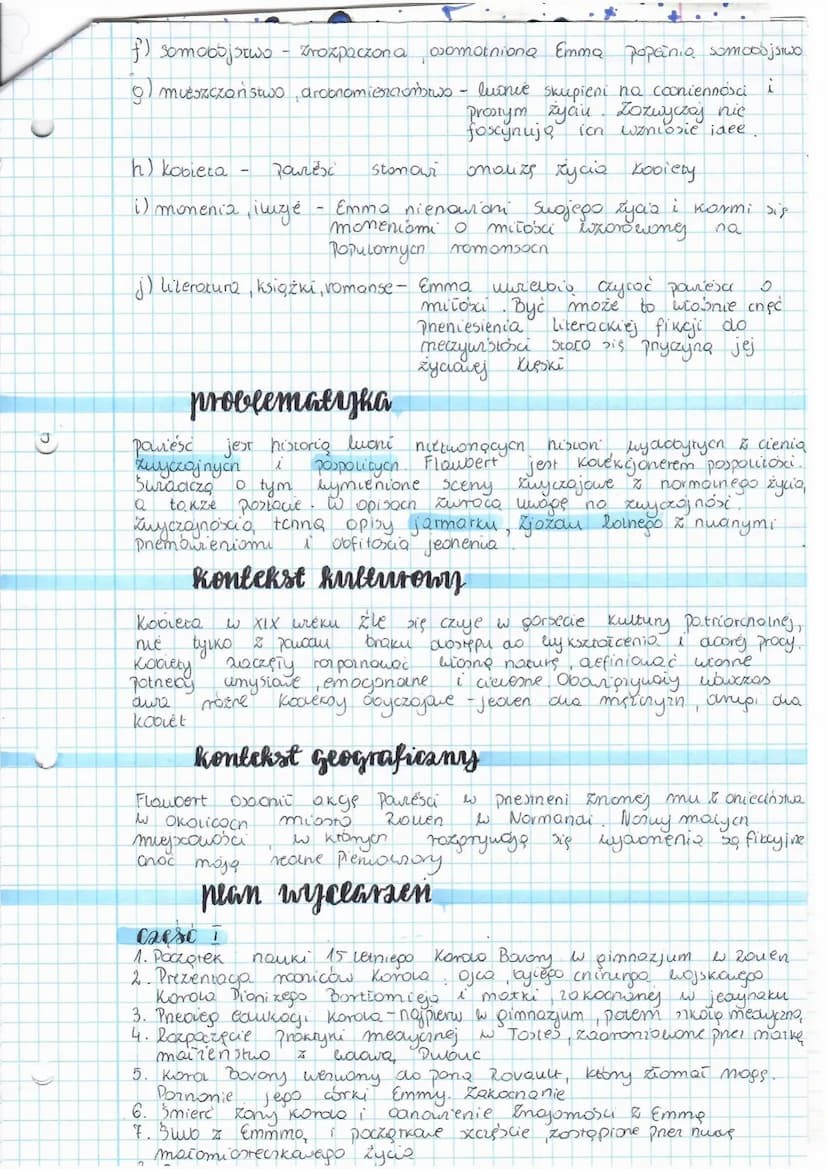 f) samobójstwo – zrozpaczona, osamotniona Emma popełnia samobójstwo
g) mieszczaństwo, drobnomieszczaństwo – ludzie skupieni na codzienności i
prostym życiu. Zazwyczaj nie
fascynują ich wzniosłe idee.
h) kobieta – powieść stanowi analizę życia kobiety
i) marzenia, iluzje – Emma nienawidzi swojego życia i karmi się
marzeniami o miłości wzorowanej na
popularnych romansach
j) literatura, książki, romanse – Emma uwielbia czytać powieści o
miłości. Być może to właśnie chęć
przeniesienia literackiej fikcji do
rzeczywistości stało się przyczyną jej
życiowej klęski
problematyka
Powieść jest historią ludzi nietworzących historii wydobytych z cienia
zwyczajnych i pospolitych. Flaubert jest kolekcjonerem pospolitości.
Świadczą o tym wymienione sceny zwyczajowe z normalnego życia,
a także postacie. W opisach zwraca uwagę na zwyczajność.
Zwyczajnością tchną opisy jarmarku, zjazdu rolnego z nudnymi
przemówieniami i obfitością jedzenia
kontekst kulturowy
Kobieta w XIX wieku źle się czuje w gorsecie kultury patriarchalnej,
nie tylko z powodu braku dostępu do wykształcenia i dobrej pracy.
Kobiety zaczęły rozpoznawać własną naturę, definiować własne
potrzeby umysłowe, emocjonalne i cielesne. Obowiązywały wówczas
dwa różne kodeksy obyczajowe – jeden dla mężczyzn, drugi dla
kobiet
kontekst geograficzny
Flaubert osadził akcję powieści w przestrzeni znanej mu z dzieciństwa
w okolicach miasta Rouen w Normandii. Nazwy małych
miejscowości, w których rozgrywają się wydarzenia są fikcyjne
choć mają realne pierwowzory
plan wydarzeń
CZĘŚĆ I
1. Początek nauki 15 letniego Karola Bovary w gimnazjum w Rouen
2. Prezentacja rodziców Karola. Ojca, byłego chirurga wojskowego
Karola Dionizego Bartłomieja i matki, zakochanej w jedynaku
3. Przebieg edukacji Karola – najpierw w gimnazjum, potem szkoła medyczna
4. Rozpoczęcie praktyki medycznej w Tostes, zaaranżowane przez matkę
małżeństwo z wdową Dubuc
5. Karol Bovary wezwany do pana Rouault, który złamał nogę.
Poznanie jego córki Emmy. Zakochanie
6. Śmierć żony Karola i odnowienie znajomości z Emmą
7. Ślub z Emmą i początkowe szczęście zastąpione przez nudę
małomiasteczkowego życia